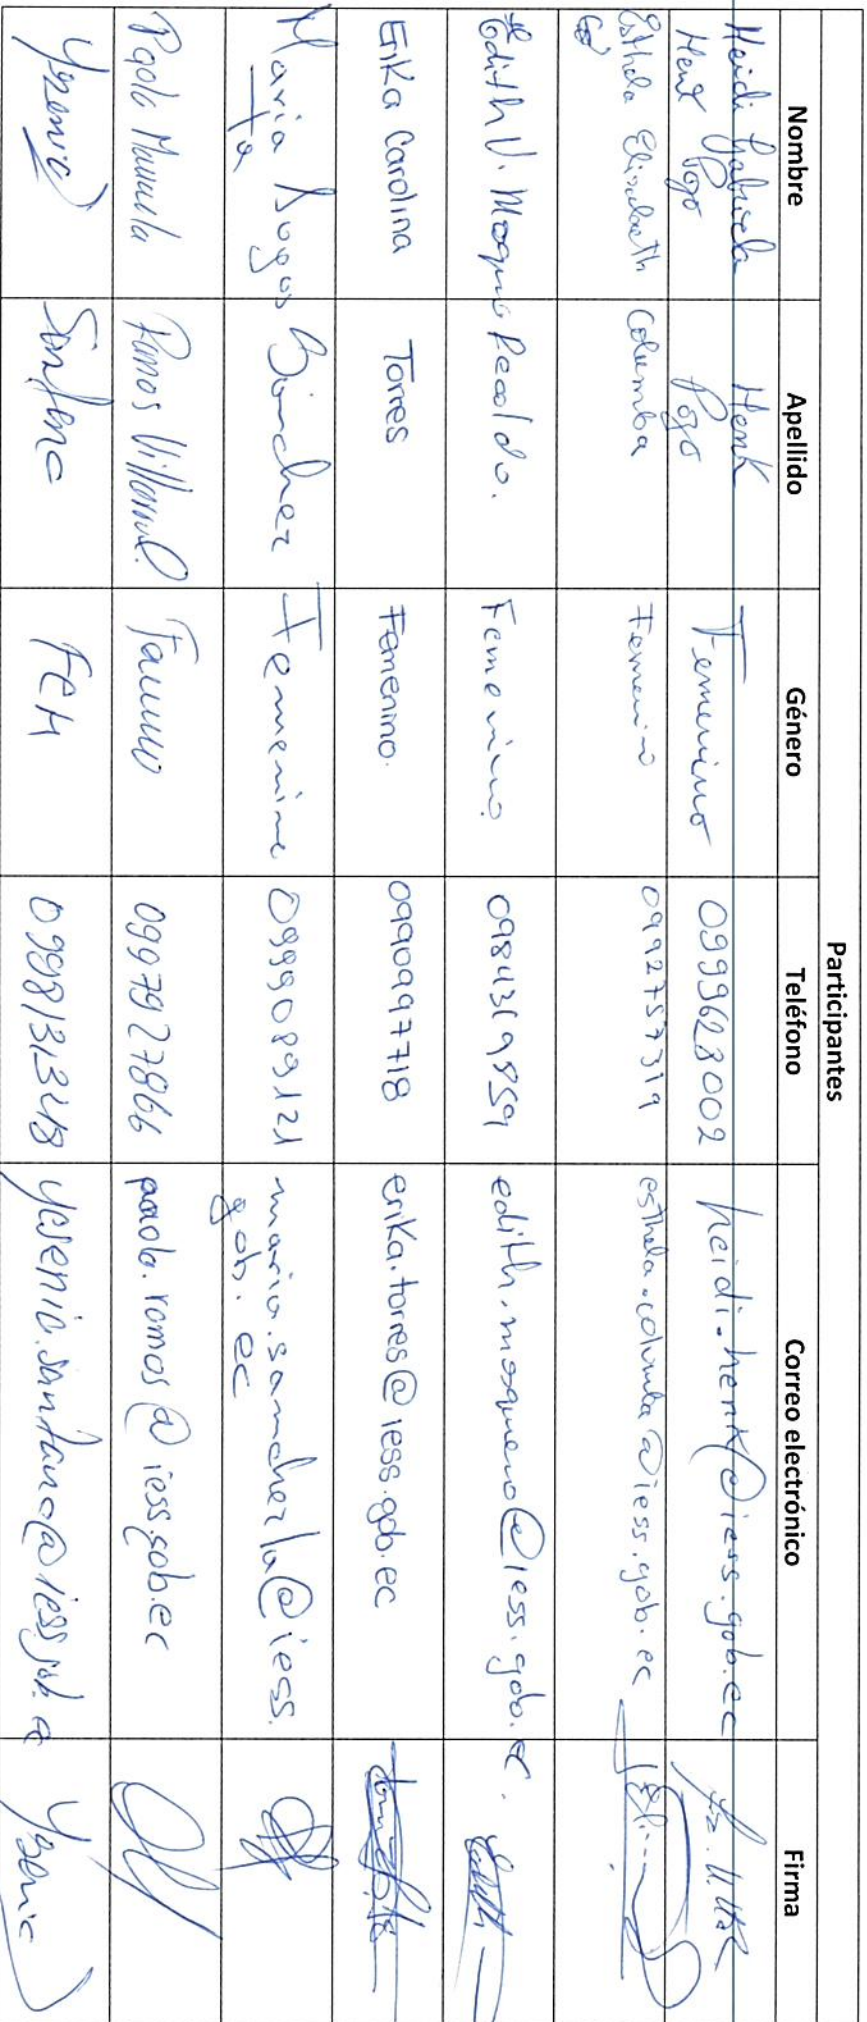 Participantes
Nombre Apellido Género Teléfono Correo electrónico Firma
Heidi Gabriela Henk Femenino 0999628002 heidi.henk@iess.gob.ec
Henk Pozo Pozo
Esthela Elizabeth Columba Femenino 0992757319 esthela.columba@iess.gob.ec
Edith V. Mosquera Recalde. Femenino. 0984319859 edith.mosquera@iess.gob.ec.
Erika Carolina Torres Femenino. 0990997718 erika.torres@iess.gob.ec
Maria Sánchez Femenino 0999089121 maria.sanchezla@iess.
gob.ec
Paola Ramos Villarreal. 0997927866 paola.ramos@iess.gob.ec
Yesenia Santana FEM 0998131348 yesenia.santana@iess.gob.ec Yesenia